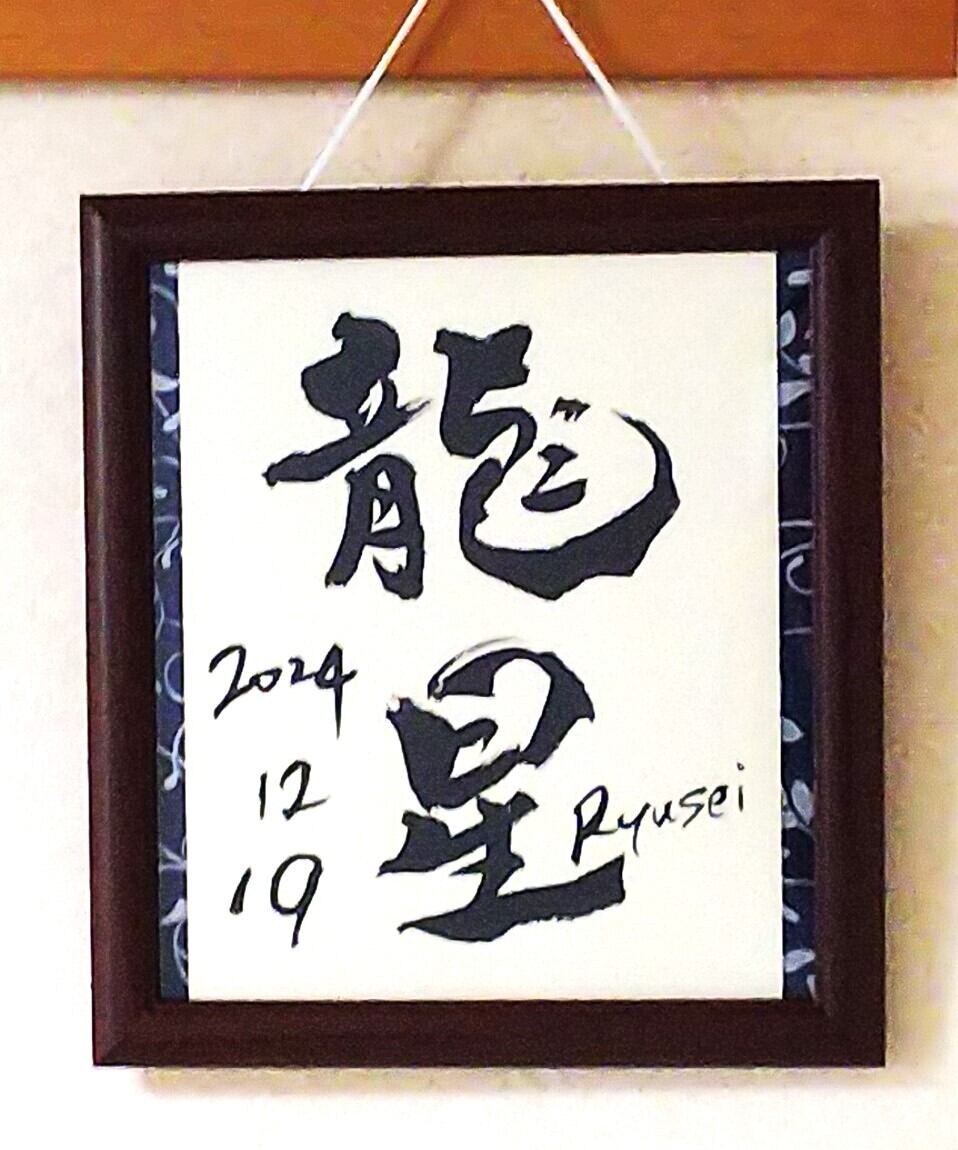 龍星
2024
12
19
Ryusei